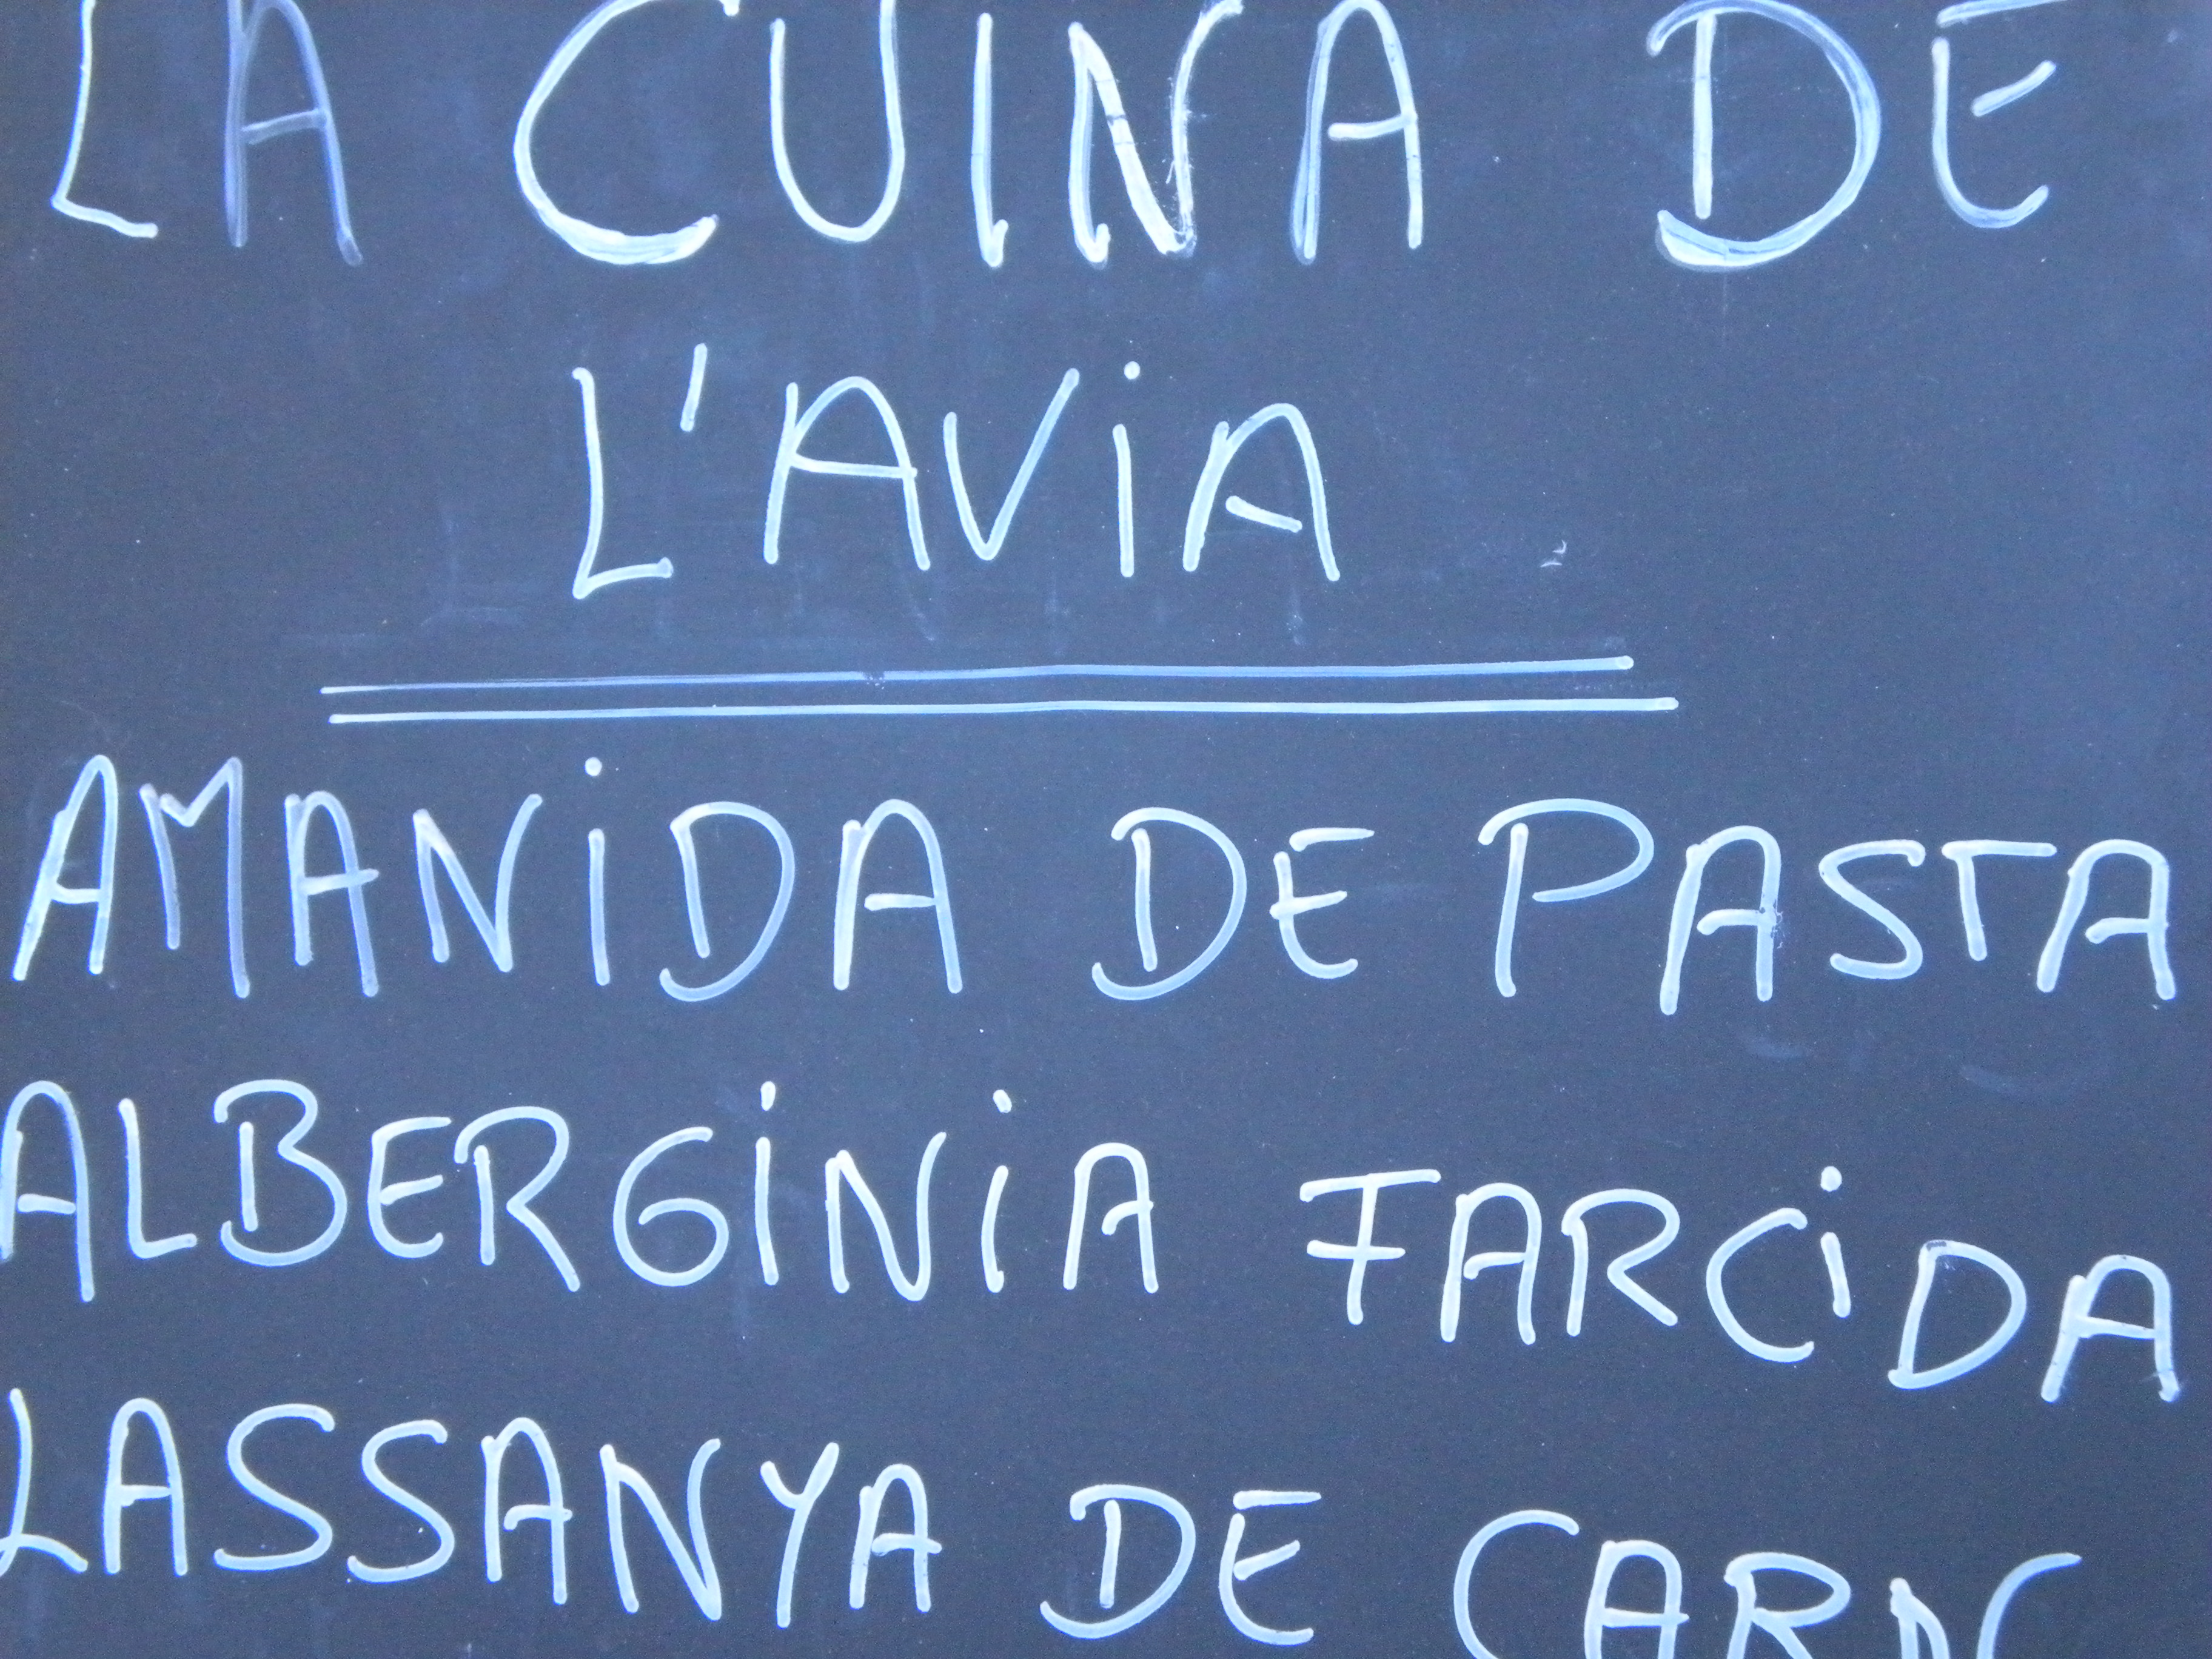 LA CUINA DE
L'AVIA
AMANIDA DE PASTA
ALBERGINIA FARCIDA
LASSANYA DE CARN